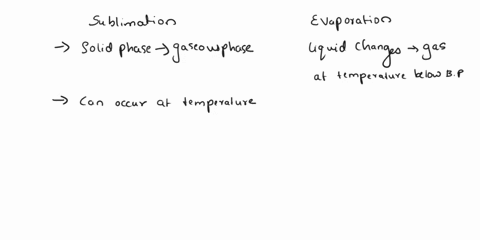 Sublimation
→ Solid phase → gaseous phase
→ Can occur at temperature
Evaporation
Liquid changes → gas
at temperature below B.P